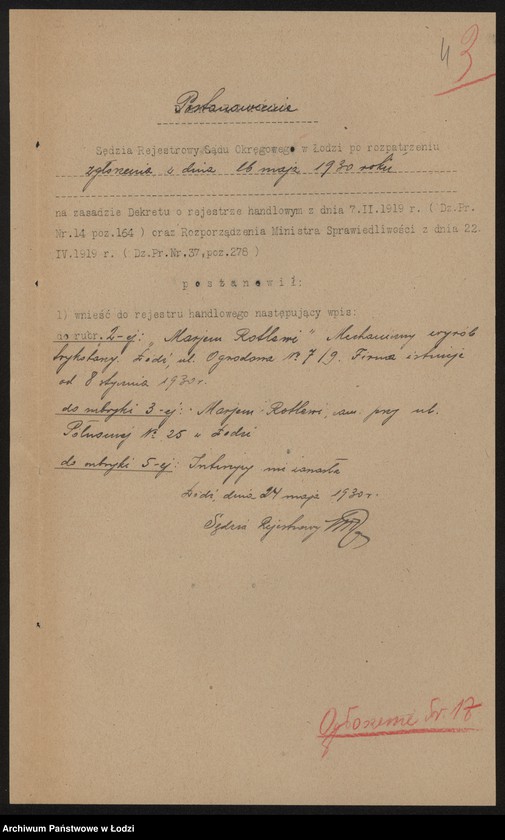 4 3
Postanowienie
Sędzia Rejestrowy Sądu Okręgowego w Łodzi po rozpatrzeniu
zgłoszenia z dnia 16 maja 1930 roku
na zasadzie Dekretu o rejestrze handlowym z dnia 7.II.1919 r. ( Dz.Pr.
Nr.14 poz.164 ) oraz Rozporządzenia Ministra Sprawiedliwości z dnia 22.
IV.1919 r. ( Dz.Pr.Nr.37,poz.278 )
postanowił:
1) wnieść do rejestru handlowego następujący wpis:
do rubr. 2-ej: "Marjem Rotlewi" Mechaniczny wyrób
trykotaży. Łódź ul. Ogrodowa № 7/9. Firma istnieje
od 8 stycznia 1930 r.
do rubryki 3-ej: Marjem Rotlewi, zam. przy ul.
Północnej № 25 w Łodzi
do rubryki 5-ej: Intercyzy nie zawarła
Łódź, dnia 24 maja 1930 r.
Sędzia Rejestrowy
Ogłoszenie Nr. 17
Archiwum Państwowe w Łodzi